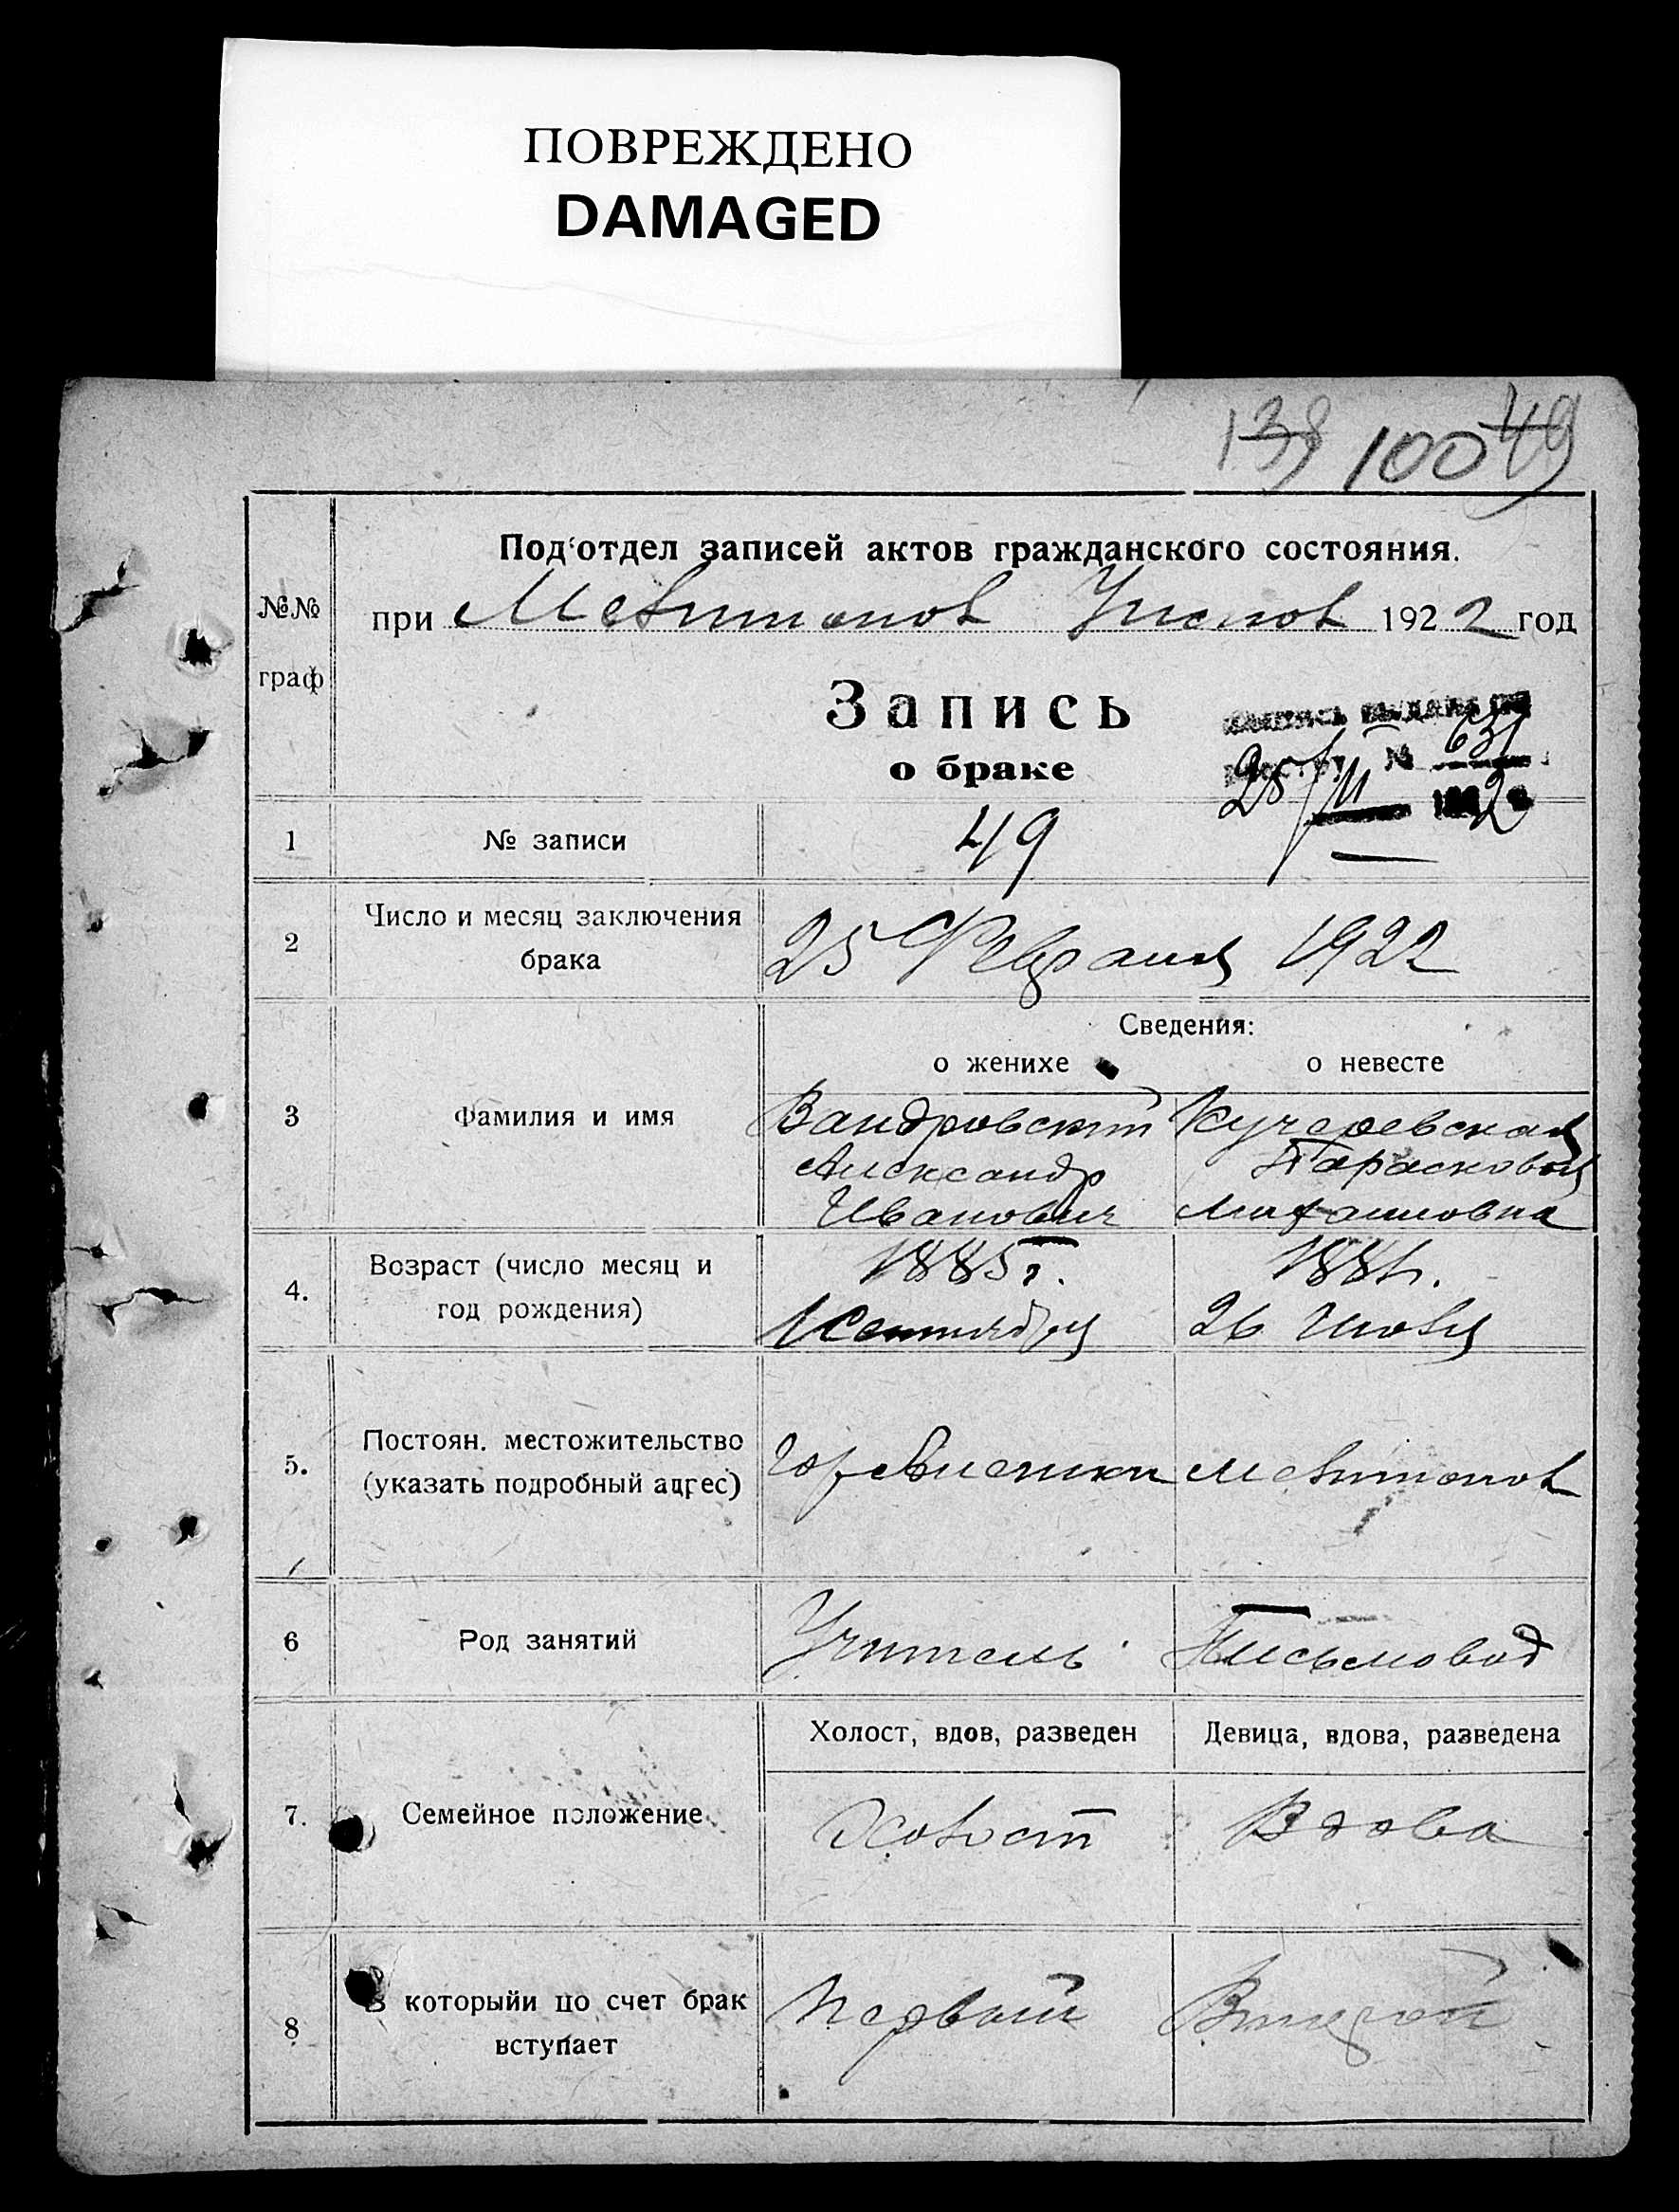 ПОВРЕЖДЕНО
DAMAGED
138 100 49
Под'отдел записей актов гражданского состояния.
№№
граф
при Мелитопол Уисполк 1922 год
Запись
о браке
№ 631
25/II 1922
1 № записи 49
2 Число и месяц заключения
брака
25 Февраля 1922
Сведения:
о женихе о невесте
3 Фамилия и имя
Вандровский Кучеревская
Александр Параскова
Иванович Михаиловна
4. Возраст (число месяц и
год рождения)
1885 г.
1 Сентября 26 Июля
5. Постоян. местожительство
(указать подробный адрес)
Мелитопол
6 Род занятий
Учитель Письмовод
Холост, вдов, разведен Девица, вдова, разведена
7. Семейное положение
Холост Вдова
8 В которыйи по счет брак
вступает
Первый Второй